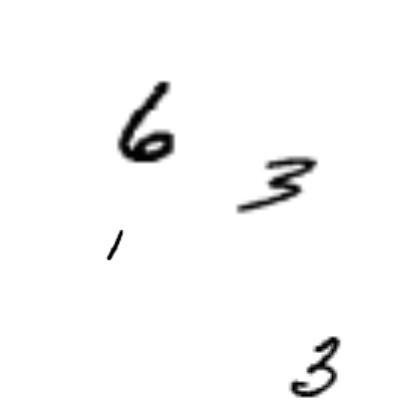 6
3
1
3